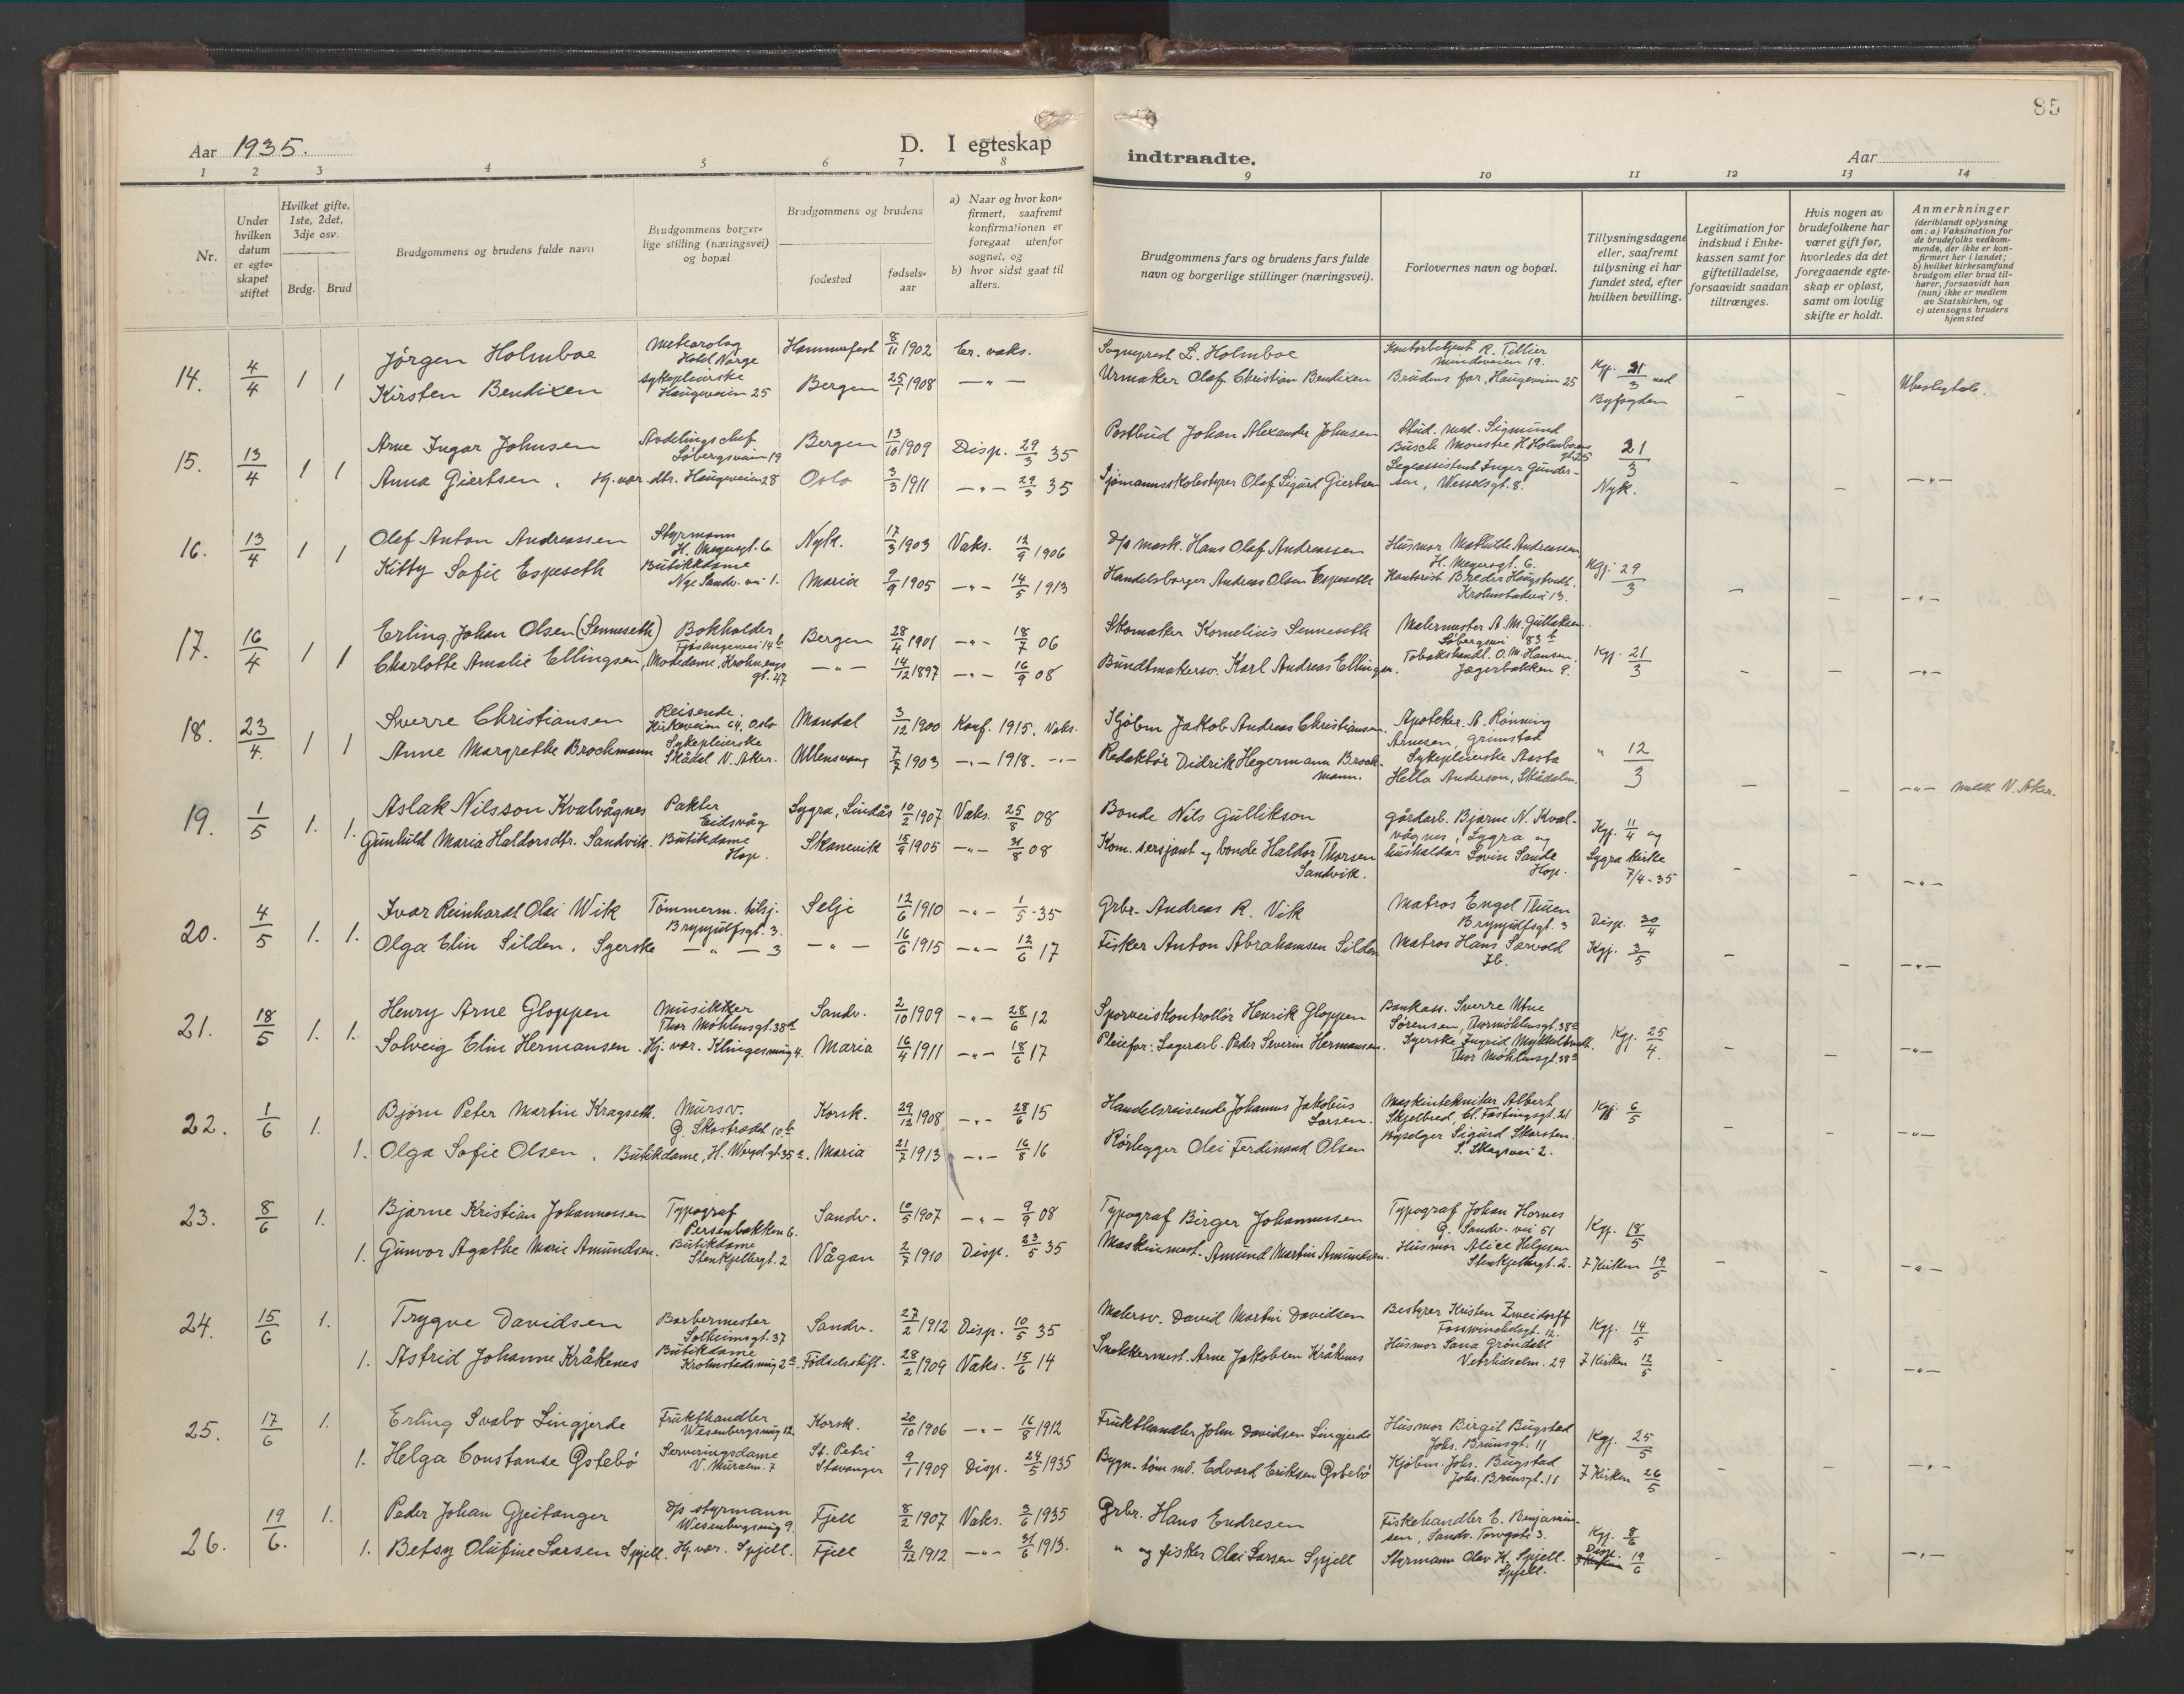 85
Aar 1935.
D. I egteskap
indtraadte.
Aar
1 2 3 4 5 6 7 8 9 10 11 12 13 14
Nr.
Under hvilken datum er egteskapet stiftet
Hvilket gifte, 1ste, 2det, 3dje osv.
Brdg. Brud
Brudgommens og brudens fulde navn
Brudgommens borgerlige stilling (næringsvei) og bopæl
Brudgommens og brudens
fødested
fødselsaar
a) Naar og hvor konfirmert, saafremt konfirmationen er foregaat utenfor sognet, og
b) hvor sidst gaat til alters.
Brudgommens fars og brudens fars fulde navn og borgerlige stillinger (næringsvei).
Forlovernes navn og bopæl.
Tillysningsdagene eller, saafremt tillysning ei har fundet sted, efter hvilken bevilling.
Legitimation for indskud i Enkekassen samt for giftetilladelse, forsaavidt saadan tiltrænges.
Hvis nogen av brudefolkene har været gift før, hvorledes da det foregaaende egteskap er opløst, samt om lovlig skifte er holdt.
Anmerkninger
(deriblandt oplysning om: a) Vaksination for de brudefolks vedkommende, der ikke er konfirmert her i landet; b) hvilket kirkesamfund brudgom eller brud tilhører, forsaavidt han (hun) ikke er medlem av Statskirken, og c) utensogns bruders hjemsted
14. 4/4 1 1 Jörgen Holmboe Meteorolog Hotel Norge Hammerfest 8/11 1902 Er. vaks. Sogneprest L. Holmboe Kontorbetjent R. Tillier Mindeveien 19. Kg. 21/3 ved Byfogden
Kirsten Bendixen Sykepleierske Haugeveien 25 Bergen 25/7 1908 —"— Urmaker Olaf Christian Bendixen Brudens far, Haugeveien 25 - - Ubeslegtede.
15. 13/4 1 1 Arne Ingar Johnsen Avdelingschef Söbergsveien 19 Bergen 13/10 1909 Disp. 29/3 35 Postbud Johan Alexander Johnsen Stud. med. Sigmund Busch Monstre H. Holmboesgt 25 21/3 Nyk.
Anna Giertsen, Hj. vær. dtr. Haugeveien 28 Oslo 3/3 1911 —"— 29/3 35 Sjömannsskolestyrer Olaf Sigurd Giertsen Legeassistent Inger Gundersen, Wesselsgt. 8. - - —"—
16. 13/4 1 1 Olaf Anton Andreassen Styrmann H. Meyersgt. 6. Nyk. 17/3 1903 Vaks. 12/9 1906 D/s mask. Hans Olaf Andreassen Husmor Mathilde Andreassen H. Meyersgt. 6. Kgj. 29/3
Kitty Sofie Espeseth Butikkdame Nye Sandv. vei 1. Maria 9/9 1905 —"— 14/5 1913 Handelsborger Andreas Olsen Espeseth Kontorist Breder Haugstvedt. 13. - - —"—
17. 16/4 1 1 Erling Johan Olsen (Senneseth) Bokholder Fjösangervei 14b Bergen 28/4 1901 —"— 18/7 06 Skomaker Kornelius Senneseth Malermester A. M. Gulleksen. Söbergsvei 83b Kgj. 21/3
Charlotte Amalie Ellingsen, Modedame, Krohnengsgt. 47 —"— 14/12 1897 —"— 16/9 08 Bundtmakersv. Karl Andreas Ellingsen. Tobakshandl. O. M. Hansen. Jægerbakken 9. - - —"—
18. 23/4. 1 1 Sverre Christiansen Reisende. Kirkeveien 64, Oslo Mandal 3/12 1900 Konf. 1915. Vaks. Kjöbm. Jakob Andreas Christiansen. Apoteker A. Rönning Arnesen, Grimstad " 12/3
Anne Margrethe Brochmann Sykepleierske Skådal V. Aker. Ullensvang 7/7 1903 —"— 1918. —"— Redaktör Didrik Hegermann Brochmann. Sykepleierske Aasta Hella Anderson, Skådalen. - - —"— V. Aker.
19. 1/5 1. 1. Aslak Nilsson Kvalvågnes Pakter Eidsvåg Lygra, Lindås 10/2 1907 Vaks. 25/8 08 Bonde Nils Gullikson gårdarb. Bjarne N. Kvalvågnes, Lygra og Kgj. 11/4 og
Gunhild Maria Haldorsdtr. Sandvik. Butikdame Hop. Skånevik 15/9 1905 —"— 31/8 08 Kom. sersjant og bonde Haldor Thorsen Sandvik. husholder Lovise Sande Hop. Lygra kirke 7/4-35 - - —"—
20. 4/5 1. 1. Ivar Reinhardt Olai Wik Tömmerm. tilsj. Brynjulfsgt. 3. Selje 12/6 1910 —"— 1/5-35 Grbr. Andreas R. Vik Matros Engel Thuen Brynjulfsgt. 3 Disp. 30/4
Olga Elin Silden. Syerske —"— 3 —"— 16/6 1915 —"— 12/6 17 Fisker Anton Abrahamsen Silden Matros Hans Sarvold Ib. Kgj. 3/5 - - —"—
21. 18/5 1. 1. Henry Arne Gloppen Musikker Thor Möhlensgt. 38a Sandv. 2/10 1909 —"— 28/6 12 Sporveiskontrollör Henrik Gloppen Bankass. Sverre Utne Sörensen, Thormöhlensgt. 38a Kgj. 25/4.
Solveig Elin Hermansen. Hj. vær. Klingesmug 4. Maria 16/4 1911 —"— 18/6 17 Pleiefar: Lagerarb. Peder Severin Hermansen. Syerske Ingrid Myklebustvedt. Thor Möhlensgt. 38a - - —"—
22. 1/6 1. Björn Peter Martin Kragseth. Mursv. Ö. Skostrædet 10b Korsk. 29/12 1908 —"— 28/6 15 Handelsreisende Johannes Jakobus Larsen. Maskintekniker Albert Skjelbred, Cl. Fastingsgt. 21 Kgj. 6/5
1. Olga Sofie Olsen, Butikdame, H. Wergel.gt. 35a. Maria 21/7 1913 —"— 16/8 16 Rörlegger Olai Ferdinand Olsen Byselger Sigurd Skarsten. S. Skogsvei 2. - - —"—
23. 8/6 1. Bjarne Kristian Johannessen Typograf Persenbakken 6. Sandv. 10/5 1907 —"— 9/9 08 Typograf Birger Johannessen Typograf Johan Hornes Ö. Sandv. vei 51 Kgj. 18/5
1. Gunvor Agathe Marie Amundsen. Butikdame Stenkjellergt. 2 Vågan 2/7 1910 Disp. 23/5 35 Maskinmest. Amund Martin Amundsen. Husmor Alice Helgesen Stenkjellergt. 2. I Kirken 19/5 - - —"—
24. 15/6 1. Trygve Davidsen Barbermester Solheimsgt. 37 Sandv. 27/2 1912 Disp. 10/5 35 Malersv. David Martin Davidsen Bestyrer Kristen Zweidorff Fosswinckelsgt. 12. Kgj. 14/5
1. Astrid Johanne Kråkenes Butikdame Krohnstadsmug 2a. Födselsstift. 28/2 1909 Vaks. 15/6 14 Snekkermest. Arne Jakobsen Kråkenes Husmor Sara Gröndahl Vetrlidsalm. 29 I Kirken 12/5 - - —"—
25. 17/6 1. Erling Svabo Lingjerde Frukthandler Wesenbergsmug 12. Korsk. 20/10 1906 —"— 16/8 1912 Frukthandler John Davidsen Lingjerde Husmor Birgit Bugstad Johs. Brunsgt. 11 Kgj. 25/5
1. Helga Constanse Östebö Serveringsdame V. Muralm. 7 St. Petri Stavanger 9/1 1909 Disp. 24/5 1935 Bygn. töm. md. Edvard Eriksen Östebö Kjöbm. Johs. Bugstad Johs. Brunsgt. 11 I Kirken 26/5 - - —"—
26. 19/6. 1. Peder Johan Gjeitanger D/s styrmann Wesenbergsmug 9. Fjell 8/2 1907 Vaks. 3/6 1935 Grbr. Hans Endresen Fiskehandler E. Benjaminsen, Sandv. Torvgate 3. Kgj. 8/6
1. Betsy Olufine Larsen Spjell. Hj. vær. Spjell. Fjell 2/12 1912 —"— 31/6 1913. " og fisker Olai Larsen Spjell Styrmann Olav H. Spjell. Spjell. Disp. 19/6 - - —"—